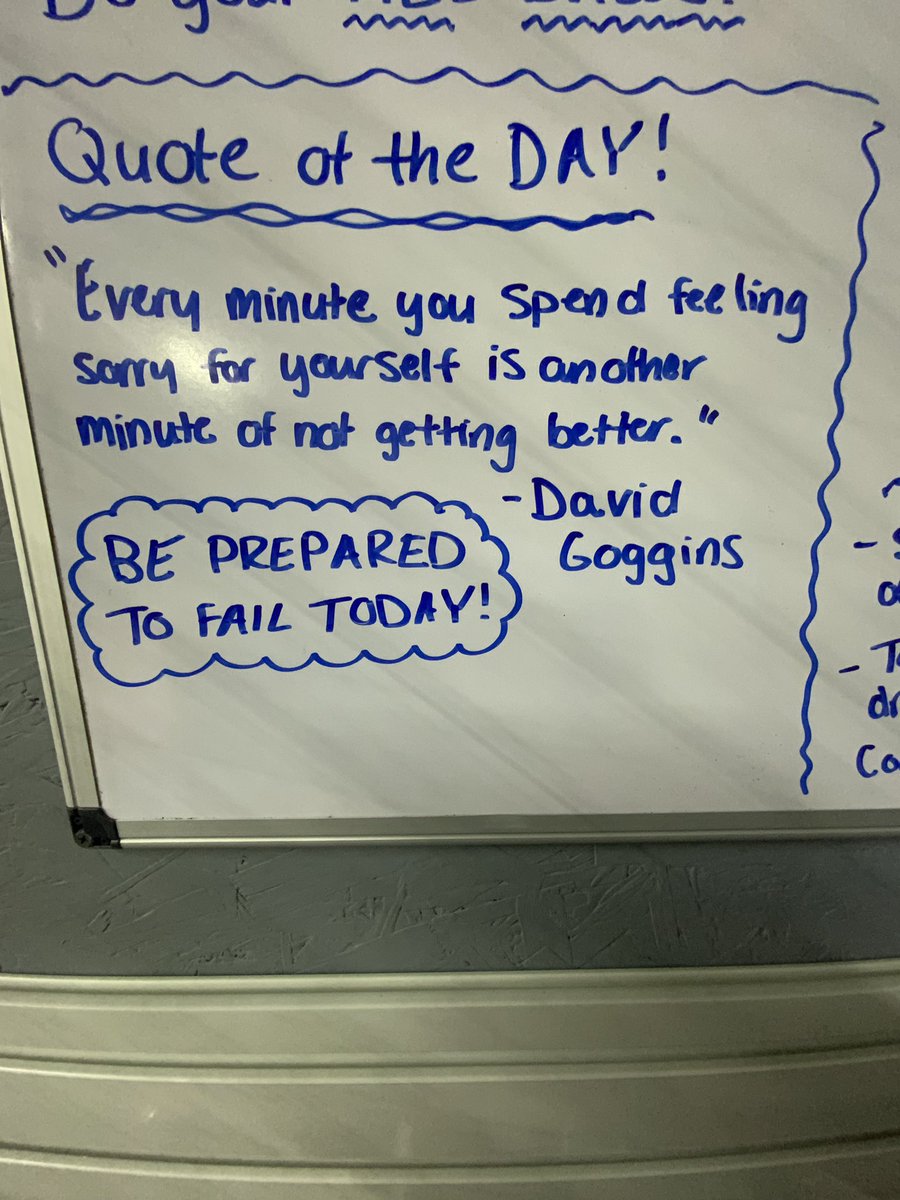 Do your
Quote of the DAY!
"Every minute you spend feeling
sorry for yourself is another
minute of not getting better."
-David
Goggins
BE PREPARED
TO FAIL TODAY!